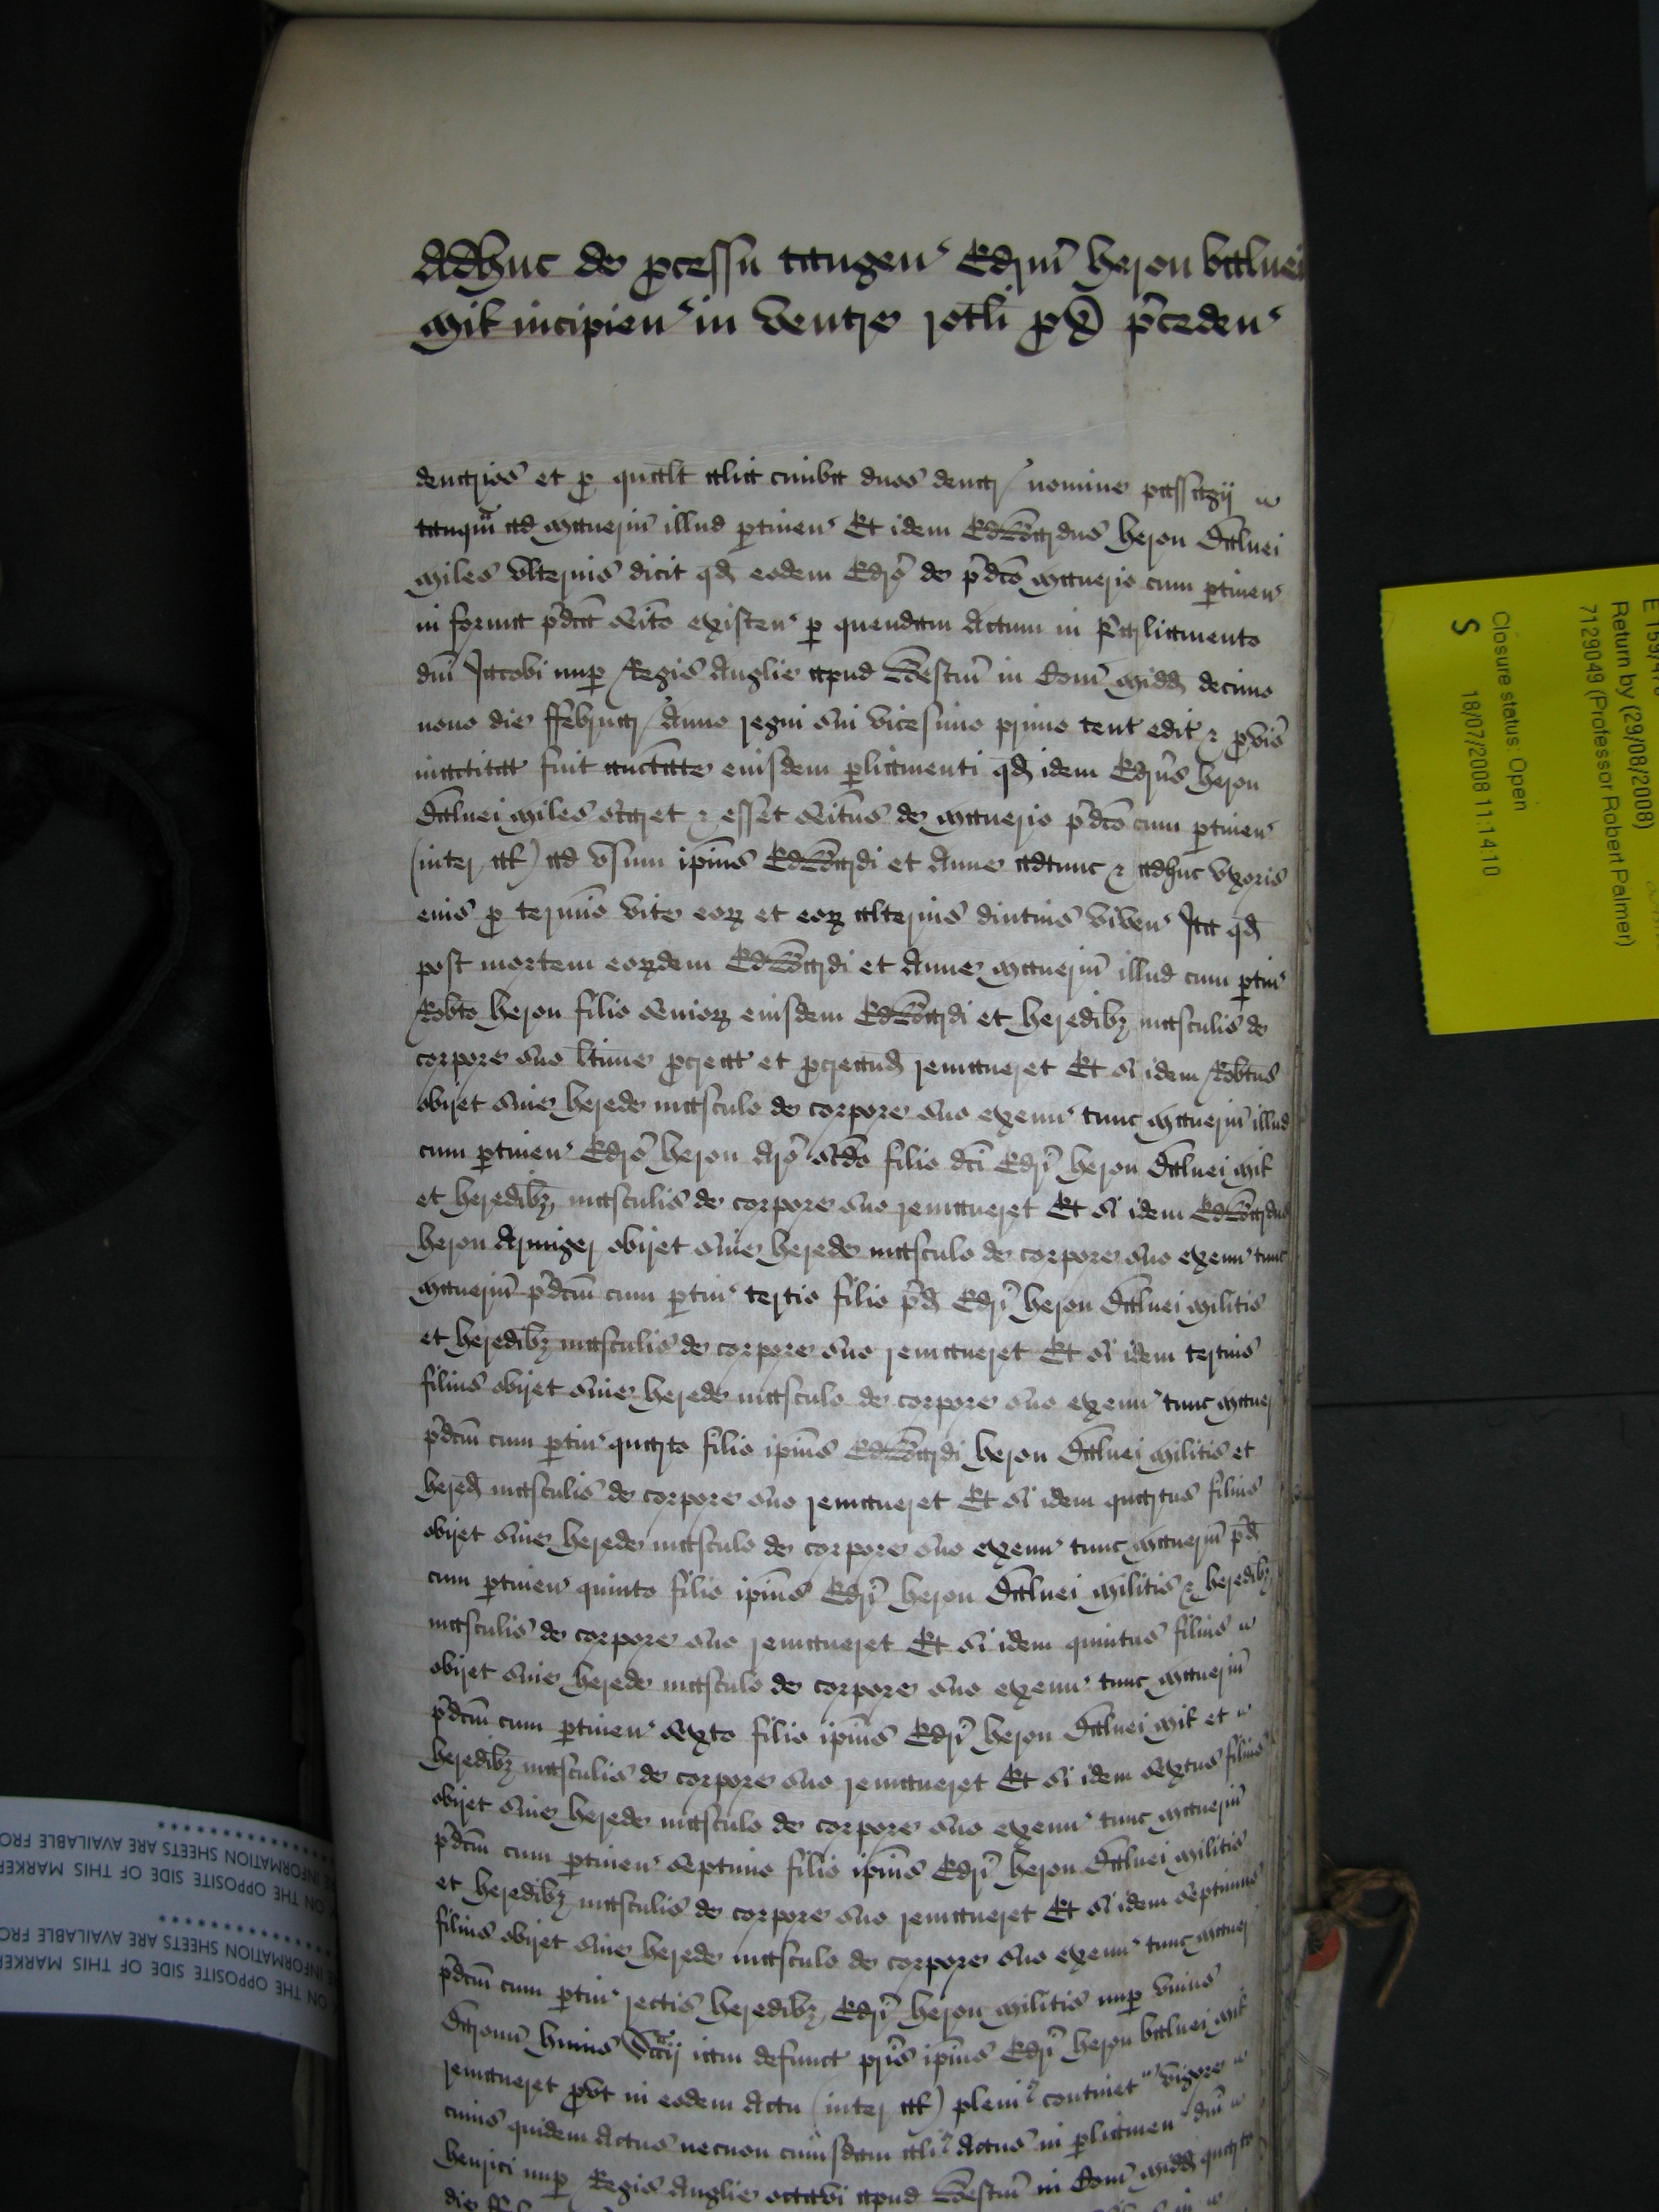 Adhuc de p̱cessu tangen' Edrūm heron balnei
milit incipien' in dentre rotli p̱ vͦ p̄ceden'
denarios et p̱ qualt alia cimba duos denar nomine passagij
tanqᵃm ad maneriū illud p̱tinen' Et idem Edwardus heron Balnei
miles vlterius dicit qđ eodem Edr̄o de p̄dc̄o manerio cum p̱tinen'
in forma p̄dcā seīto existen' p̱ quendam Actum in Parliamento
dn̄i Jacobi nup̱ Regis Anglie apud Westm̄ in Com̄ Midd decimo
nono die ffebruar Anno regni sui vicesimo primo tent edit & p̱vis
inactitat fuit auctate eiusdem p̱liamenti qđ idem Edrus heron
Balnei miles staret & esset seitus de manerio p̄dc̄o cum p̱tinen'
(inter al) ad vsum ip̄ius Edwardi et Anne adtunc & adhuc vxoris
eius p̱ termīo vite eoꝝ et eoꝝ alterius diutius viven' Ita qđ
post mortem eoꝝdem Edwardi et Anne maneriū illud cum p̱tin'
Rob̄to heron filio senioꝝ eiusdem Edwardi et heredibꝫ masculis de
corpore suo ltime p̱creat et p̱creand remaneret Et si idem Rob̄tus
obijet sine herede masculo de corpore suo exeun' tunc maneriū illud
cum p̱tinen' Edr̄o heron Ar̄o sc̄do filio dc̄i Edr̄i heron Balnei mil
et heredibꝫ masculis de corpore suo remaneret Et si idem Edwardus
heron Armiger obijet sine herede masculo de corpore suo exeun' tunc
maneriū p̄dcm̄ cum p̱tin' tertio filio p̄d Edr̄i heron Balnei militis
et heredibꝫ masculis de corpore suo remaneret Et si idem tertius
filius obijet sine herede masculo de corpore suo exeun' tunc maner
p̄dcm̄ cum p̱tin' quarto filio ip̄ius Edwardi heron Balnei militis et
hered masculis de corpore suo remaneret Et si idem quartus filius
obijet sine herede masculo de corpore suo exeun' tunc maneriū p̄d
cum p̱tinen' quinto filio ip̄ius Edr̄i heron Balnei militis & heredibꝫ
masculis de corpore suo remaneret Et si idem quintus filius
obijet sine herede masculo de corpore suo exeun' tunc maneriū
p̄dcm̄ cum p̱tinen' sexto filio ip̄ius Edr̄i heron Balnei mil et
heredibꝫ masculis de corpore suo remaneret Et si idem sextus filius
obijet sine herede masculo de corpore suo exeun' tunc maneriū
p̄dcm̄ cum p̱tinen' septimo filio ip̄ius Edr̄i heron Balnei militis
et heredibꝫ masculis de corpore suo remaneret Et si idem septimus
filius obijet sine herede masculo de corpore suo exeun' tunc maner
p̄dcm̄ cum p̱tin' rectis heredibꝫ Edr̄i heron militis nup̱ vnius
Baronū huius Scᵃcij iam defunct pr̄is ip̄ius Edr̄i heron balnei mil
remaneret p̱vt in eodem Actu (inter al) pleni⁹ continet vigore
cuius quidem Actus necnon cuiusdam ali⁹ Actus in p̱liamen' dn̄i
henrici nup̱ Regis Anglie octavi apud Westm̄ in Com̄ Midd quarto
Return by (29/08/2008)
7129049 (Professor Robert Palmer)
Closure status: Open
18/07/2008 11:14:10
S
INFORMATION SHEETS ARE AVAILABLE FRO
ON THE OPPOSITE SIDE OF THIS MARKER
INFORMATION SHEETS ARE AVAILABLE FRO
ON THE OPPOSITE SIDE OF THIS MARKER